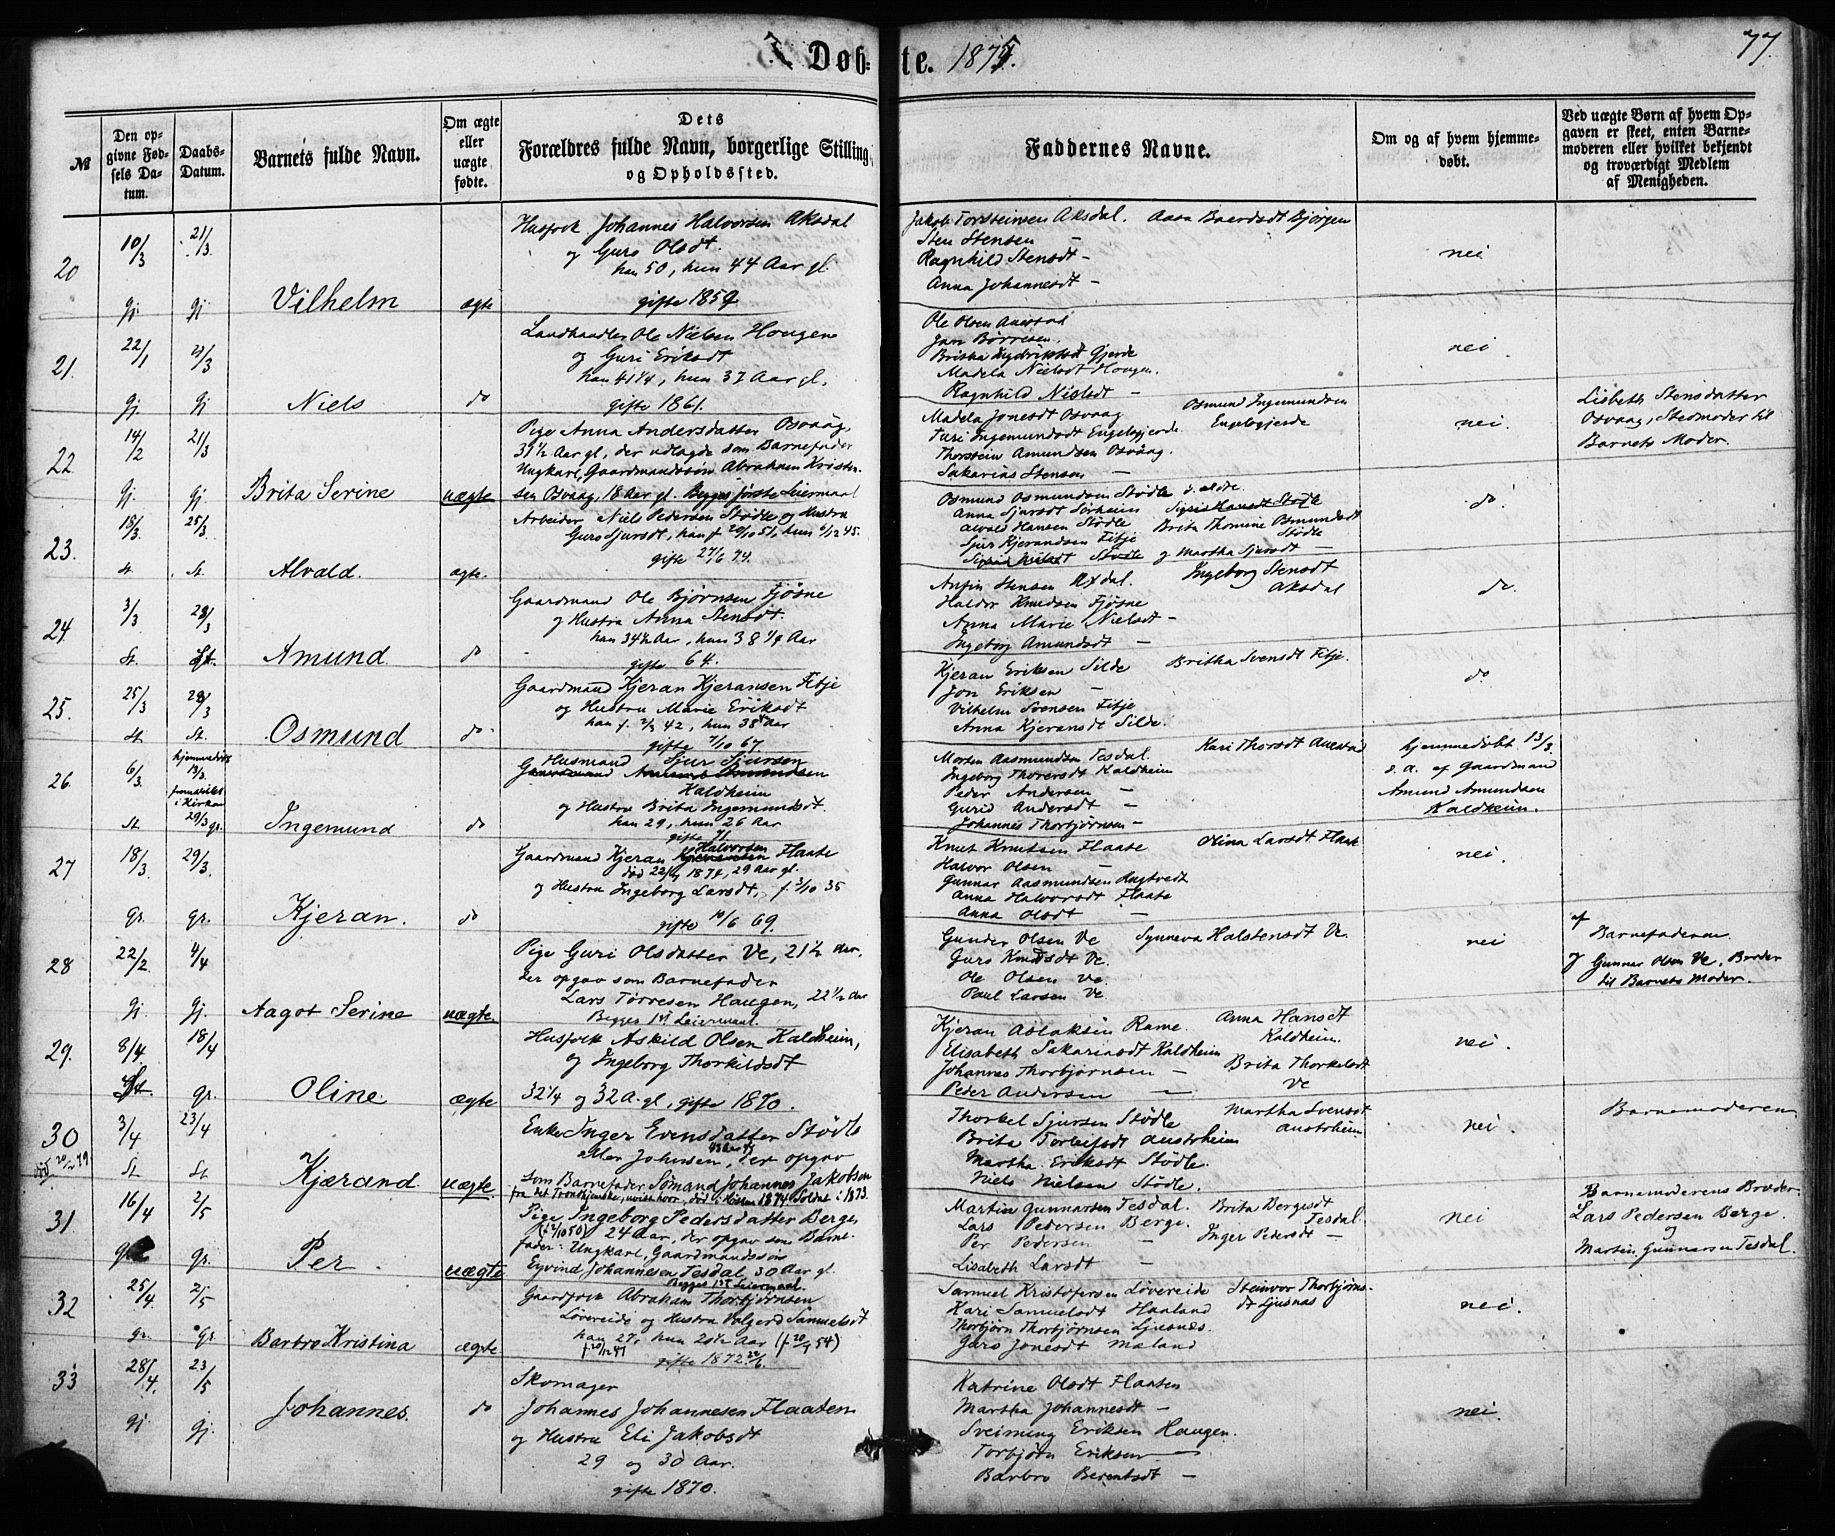 7. Døbte. 1875.
77.
№
Den opgivne Fødsels Datum.
Daabs-Datum.
Barnets fulde Navn.
Om ægte eller uægte fødte.
Dets Forældres fulde Navn, borgerlige Stilling og Opholdssted.
Faddernes Navne.
Om og af hvem hjemmedøbt.
Ved uægte Børn af hvem Opgaven er skeet, enten Barnemoderen eller hvilket bekjendt og troværdigt Medlem af Menigheden.
20
10/3
21/3
gj.
gj
Vilhelm
ægte
Husfolk Johannes Halvorsen Aksdal
og Guro Olsdt.
han 50, hun 44 Aar gl.
gifte 1859.
Jakob Torsteinsen Aksdal. Aasa Baardsdt Bjørgen
Sten Stensen —
Ragnhild Stensdt —
Anna Johannesdt —
nei
21.
22/1
21/3
gj.
gj
Niels
do
Landhandler Ole Nielsen Hougen
og Guri Eriksdt
han 41 1/4, hun 37 Aar gl.
gifte 1861.
Ole Olsen Auestad
Jan Børresen.
Britha Gjerde
Madela Nielsdt Hougen.
Ragnhild Nielsdt —
nei.
22.
14/2
21/3
gj.
gj.
Brita Serine
uægte
Pige Anna Andersdatter Osvaag,
31 1/2 Aar gl, der udlagde som Barnefader
Ungkarl, Gaardmandssøn Abraham Kristen-
sen Osvaag, 18 Aar gl. Begges første Leiermaal
Madela Jonesdt Osvaag Osmund Ingemundsen
Turi Ingemundsdt Engelsgjerde. Engelsgjerde
Thorstein Amundsen Osvaag.
Sakarias Stensen —
nei.
Lisbeth Stensdatter
Osvaag, Stedmoder til
Barnets Moder.
23.
18/3
25/3
St.
St.
Alvald.
ægte.
Arbeider Niels Pedersen Stødle og Hustru
Guro Sjursdt, han f 20/10 51, hun 6/12 45.
gifte 27/6 74.
Osmund Osmundsen Stødle d. eldre
Anna Sjursdt Sørheim Sigrid Hansdt Stødle
Alvald Hansen Stødle Brita Thomine Osmundsdt
Sjur Kjerandsen Fitje Stødle
Stødle og Martha Sjursdt —
do
24.
3/3
28/3
St.
St.
Amund
do
Gaardmand Ole Bjørnsen Fjøsne
og Hustru Anna Stensdt.
han 34 1/2 Aar, hun 38 1/4 Aar
gifte 64.
Anfin Stensen Axdal. Ingeborg Stensdt
Haldor Knudsen Fjøsne Aksdal
Anna Marie Nielsdt —
Ingeborg Amundsdt —
do.
25.
25/3
28/3
St.
St.
Osmund
do.
Gaardmand Kjeran Kjeransen Fitje
og Hustru Marie Eriksdt
han f. 2/2 42, hun 38 Aar
gifte 7/10 67.
Kjeran Eriksen Silde Britha Svensdt Fitje.
Jon Eriksen —
Vilhelm Svensen Fitje
Anna Kjeransdt Silde.
do
26.
6/3
hjemmedøbt 13/3.
fremstillet
i Kirken
29/3 gr.
St.
Ingemund
do
Husmand Sjur Sjursen
Gaardmand Amund Amundsen
Kaldheim
og Hustru Brita Ingemundsdt
han 29, hun 26 Aar
gifte 71.
Morten Aasmundsen Tesdal. Kari Thorsdt Auestad
Ingeborg Thoresdt Kaldheim
Peder Andersen —
Gurid Andersdt —
Johannes Thorbjørnsen —
hjemmedøbt 13/3.
d. a. af Gaardmand
Amund Amundsen
Kaldheim.
27
18/3
29/3.
gr.
gr.
Kjeran.
do
Halvorsen
Gaardmand Kjeran Kjeransen Flaate
død 22/ 1874, 29 Aar gl.
og Hustru Ingeborg Larsdt, f 3/10 35
gifte 10/6 69.
Knut Knutsen Flaate Olina Larsdt Flaate
Halvor Olsen —
Gunnar Aasmundsen
Anna Halvorsdt Flaate
Anna Olsdt —
nei.
28
22/2.
4/4
gj.
gj.
Aagot Serine
uægte
Pige Guri Olsdatter Ve, 21 1/2 Aar,
der opgav som Barnefader
Lars Tørresen Haugen, 22 1/2 Aar
Begges 1st Leiermaal.
Gunder Olsen Ve Synneva Halstensdt Ve.
Guro Knudsdt Ve.
Ole Olsen Ve.
Paul Larsen Ve
nei
af
Barnefaderen
og Gunnar Olsen Ve. Broder
til Barnets Moder.
29.
8/4
18/4
St.
gr.
Oline
ægte
Husfolk Askild Olsen Kaldheim,
og Ingeborg Thorkildsdt
32 1/4 og 32 A. gl, gifte 1870.
Kjeran Aslaksen Rame. Anna Hansdt
Elisabeth Sakariasdt Kaldheim Kaldheim.
Johannes Thorbjørnsen — Brita Thorkelsdt
Peder Andersen — Ve
nei.
30
død 20/ 79.
3/4
23/4
St
St
Kjærand.
uægte.
Enke Inger Evensdatter Stødle
43 Aar gl
eller Johnsen, der opgav
som Barnefader Sømand Johannes Jakobsen
fra det Trondhjemske, uvist hvor, død i Høsten 1874 Soldat i 1873.
Thorkel Sjursen Stødle Martha Svensdt
Brita Torleifsdt Austrheim Austrheim
Martha Eriksdt Stødle.
Niels Nielsen Stødle.
nei.
Barnemoderen
31
16/4
2/5
gr.
gr.
Per
uægte
Pige Ingeborg Pedersdatter Berge
(12/10 50) 24 Aar, der opgav som Barne-
fader: Ungkarl, Gaardmandssøn
Eyvind Johannesen Tesdal 30 Aar gl.
Begges 1st Leiermaal.
Martin Gunnarsen Tesdal. Brita Bergesdt
Lars Pedersen Berge. Tesdal
Per Pedersen — Inger Pedersdt —
Lisabeth Larsdt —
nei
Barnemoderens Brøder
Lars Pedersen Berge.
og
Martin Gunnarsen Tesdal.
32
25/4.
2/5
gr.
gr.
Barbro Kristina
ægte
Gaardfolk Abraham Thorbjørnsen
Løvereide og Hustru Valgerd Samuelsdt
han 27, hun 20 1/2 Aar (f 20/9 54)
f 20/12 47
gifte 1872 22/6.
Samuel Kristofersen Løvereide Steinvor Thorbjørns-
Kari Samuelsdt Haaland dt Ljusnas
Thorbjørn Thorbjørnsen Ljusnæs.
Guro Jonesdt Maland
nei.
33
28/4.
23/5
gj
gj.
Johannes.
do
Skomager
Johannes Johannesen Flaaten
og Hustru Eli Jakobsdt
29 og 30 Aar.
gifte 1870.
Katrine Olsdt Flaaten
Martha Johannesdt —
Sveinung Eriksen Haugen.
Torbjørn Eriksen —
Barbro Berentsdt —
nei.